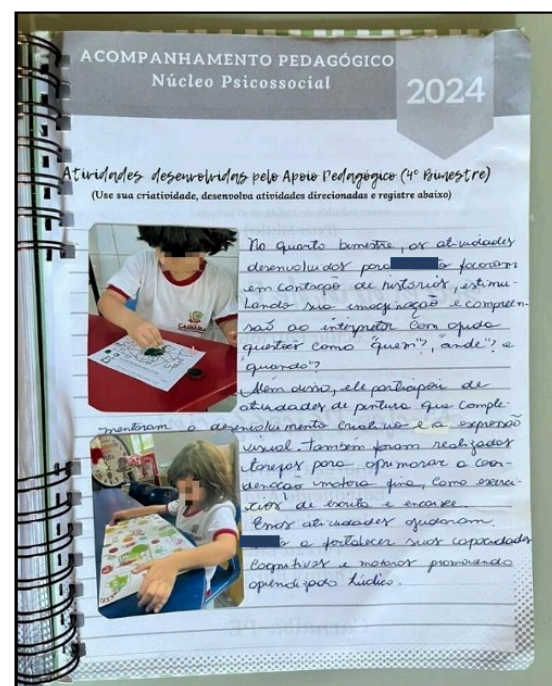 ACOMPANHAMENTO PEDAGÓGICO
Núcleo Psicossocial
2024
Atividades desenvolvidas pelo Apoio Pedagógico (4º Bimestre)
(Use sua criatividade, desenvolva atividades direcionadas e registre abaixo)
No quarto bimestre, as atividades
desenvolvidas para o focaram
em contação de histórias, estimu-
lando sua imaginação e compreen-
são ao interpretar com ajuda
questões como "quem"?, "onde"? e
"quando"?
Além disso, ele participou de
atividades de pintura que comple-
mentaram o desenvolvimento criativo e a expressão
visual. Também foram realizadas
tarefas para aprimorar a coor-
denação motora fina, como exercí-
cios de escrita e encaixe.
Essas atividades ajudaram
o a fortalecer suas capacidades
cognitivas e motoras promovendo
aprendizado lúdico.